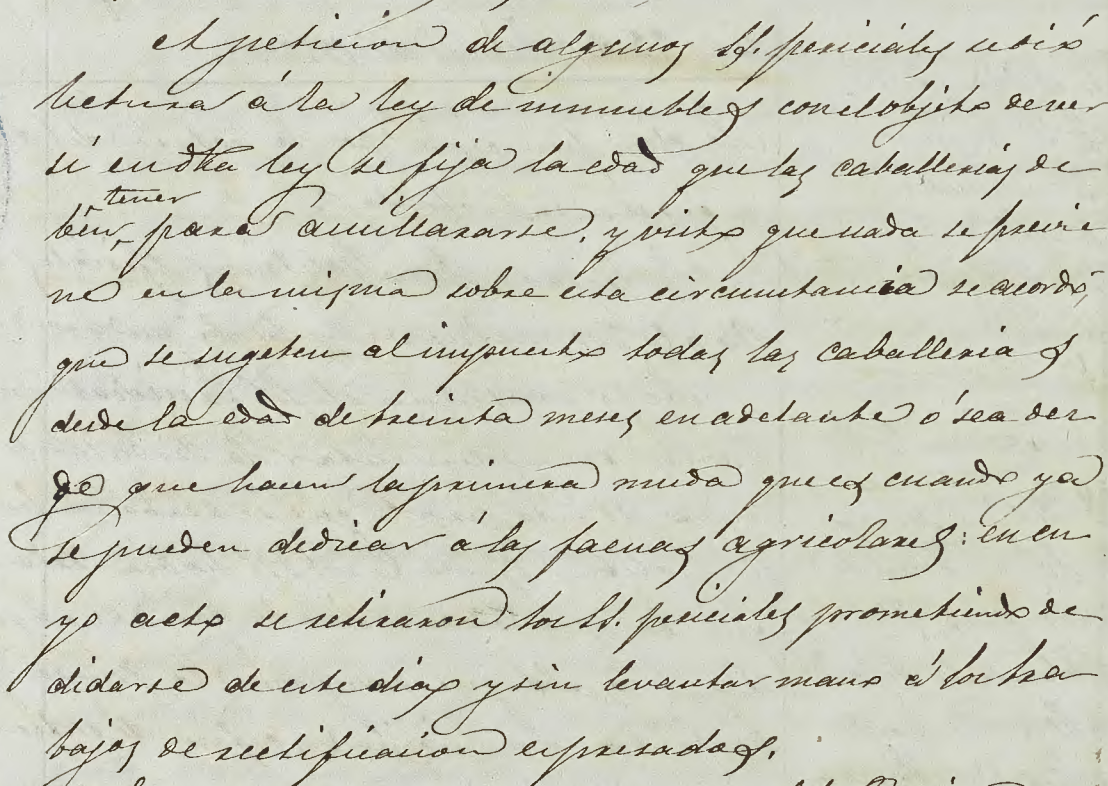 A peticion de algunos SS. periciales se dió
lectura á la ley de inmuebles con el objeto de ver
si en dha ley se fija la edad que las caballerias de
tener
ben para amillararse, y visto que nada se previe
ne en la misma sobre esta circunstancia se acordó,
que se sugeten al impuesto todas las caballerias
desde la edad de treinta meses en adelante ó sea des
de que hacen la primera muda que es cuando ya
se pueden dedicar á las faenas agricolares: en cu
yo acto se retiraron los SS. periciales prometiendo de
didarse de este dia y sin levantar mano á los tra
bajos de rectificacion espresados.